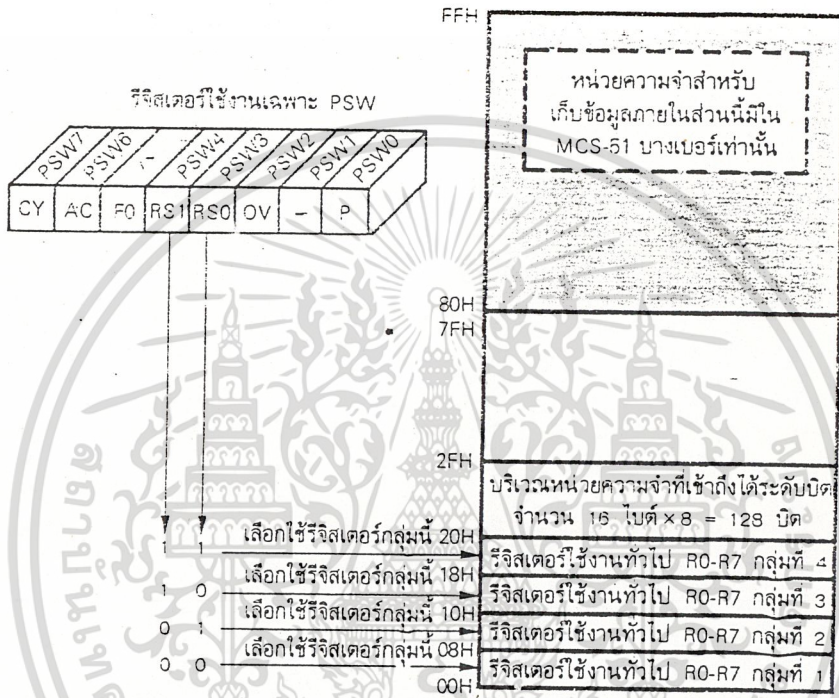 FFH
หน่วยความจำสำหรับ
เก็บข้อมูลภายในส่วนนี้มีใน
MCS-51 บางเบอร์เท่านั้น
รีจิสเตอร์ใช้งานเฉพาะ PSW
PSW7 PSW6 PSW4 PSW3 PSW2 PSW1 PSW0
CY AC F0 RS1 RS0 OV - P
80H
7FH
2FH
บริเวณหน่วยความจำที่เข้าถึงได้ระดับบิต
จำนวน 16 ไบต์ × 8 = 128 บิต
1 1 เลือกใช้รีจิสเตอร์กลุ่มนี้ 20H
รีจิสเตอร์ใช้งานทั่วไป R0-R7 กลุ่มที่ 4
1 0 เลือกใช้รีจิสเตอร์กลุ่มนี้ 18H
รีจิสเตอร์ใช้งานทั่วไป R0-R7 กลุ่มที่ 3
0 1 เลือกใช้รีจิสเตอร์กลุ่มนี้ 10H
รีจิสเตอร์ใช้งานทั่วไป R0-R7 กลุ่มที่ 2
0 0 เลือกใช้รีจิสเตอร์กลุ่มนี้ 08H
รีจิสเตอร์ใช้งานทั่วไป R0-R7 กลุ่มที่ 1
00H